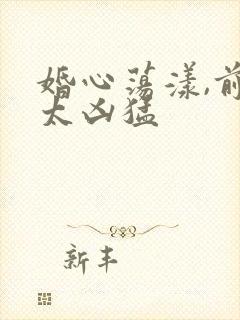 婚心荡漾,前
太凶猛
新丰